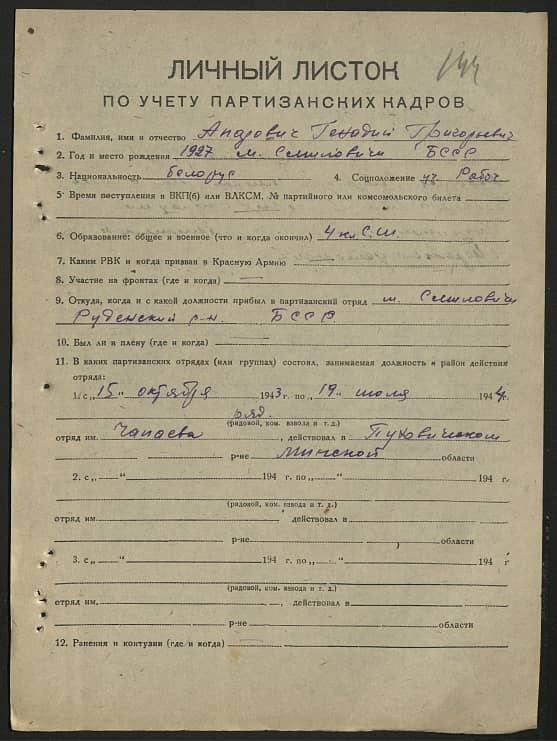 144
ЛИЧНЫЙ ЛИСТОК
ПО УЧЕТУ ПАРТИЗАНСКИХ КАДРОВ
1. Фамилия, имя и отчество Андрович Генадий Григорьевич
2. Год и место рождения 1927 м. Смиловичи БССР
3. Национальность белорус 4. Соцположение уч. Рабоч
5. Время поступления в ВКП(б) или ВЛКСМ, № партийного или комсомольского билета
6. Образование: общее и военное (что и когда окончил) 4 кл С.Ш.
7. Каким РВК и когда призван в Красную Армию
8. Участие на фронтах (где и когда) —
9. Откуда, когда и с какой должности прибыл в партизанский отряд м. Смиловичи
Руденский р-н. БССР
10. Был ли в плену (где и когда) —
11. В каких партизанских отрядах (или группах) состоял, занимаемая должность и район действия
отряда:
1. с „15“ октября 1943 г. по „19“ июля 1944 г.
ряд.
(рядовой, ком. взвода и т. д.)
отряд им. Чапаева, действовал в Пуховичском
р-не Минской области
2. с „ “ 194 г. по „ “ 194 г.
(рядовой, ком. взвода и т. д.)
отряд им. действовал в
р-не области
3. с „ “ 194 г. по „ “ 194 г
(рядовой, ком. взвода и т. д.)
отряд им. , действовал в
р-не области
12. Ранения и контузии (где и когда) —